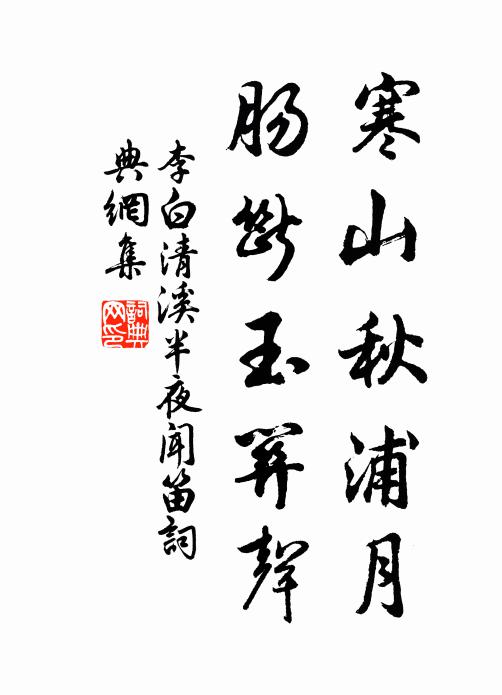 寒山秋浦月
肠斷玉關聲
李白清溪半夜闻笛詞
典網集
詞典
网印